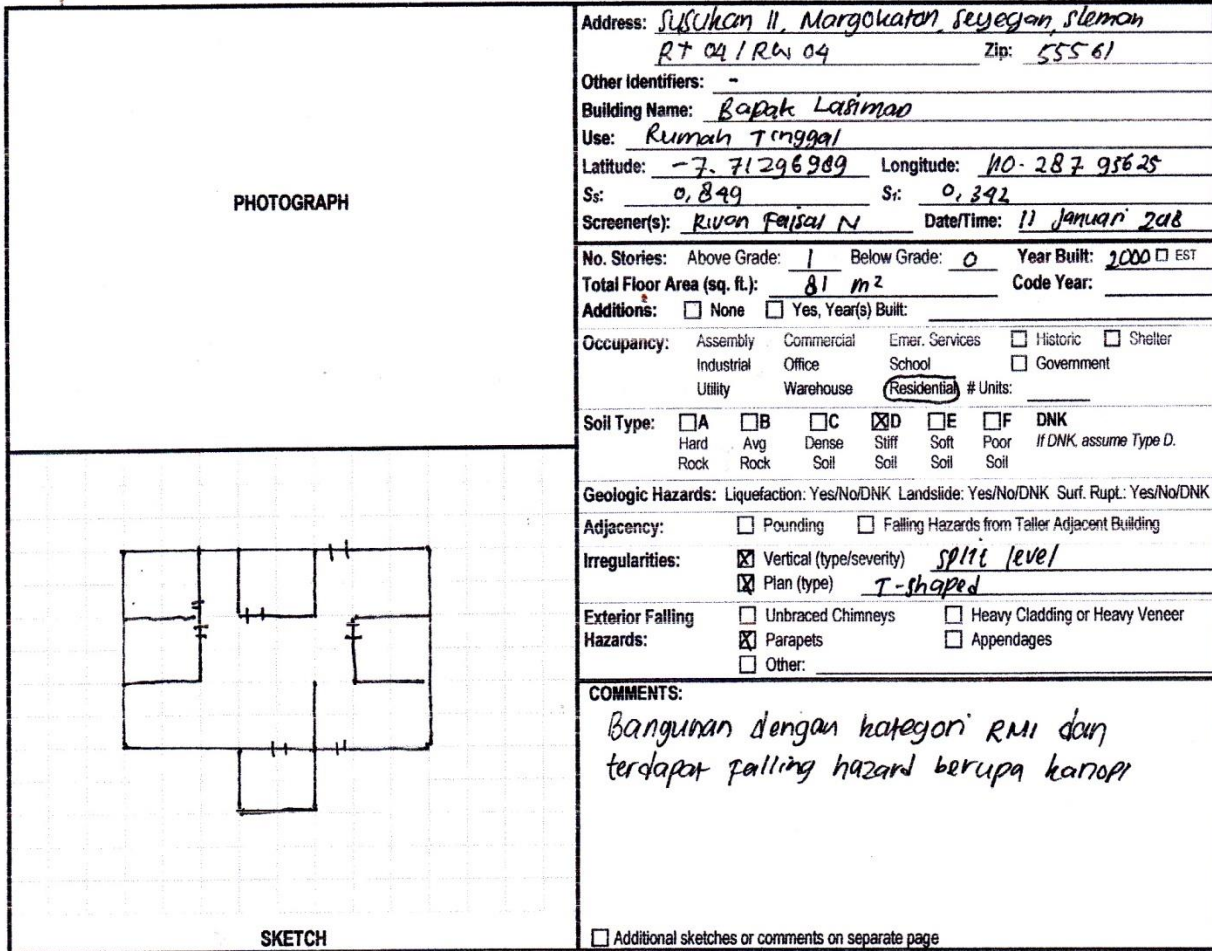 PHOTOGRAPH
SKETCH
Address: Susukan II, Margokaton, Seyegan, Sleman
Rt 04 / RW 04 Zip: 55561
Other Identifiers: -
Building Name: Bapak
Use: Rumah Tinggal
Latitude: -7.71296989 Longitude: 110.28795625
Ss: 0,849 S1: 0,342
Screener(s): Faisal N Date/Time: 11 Januari 2018
No. Stories: Above Grade: 1 Below Grade: 0 Year Built: 2000 ☐ EST
Total Floor Area (sq. ft.): 81 m² Code Year:
Additions: ☐ None ☐ Yes, Year(s) Built:
Occupancy: Assembly Commercial Emer. Services ☐ Historic ☐ Shelter
Industrial Office School ☐ Government
Utility Warehouse Residential # Units:
Soil Type: ☐A ☐B ☐C ☒D ☐E ☐F DNK
Hard Avg Dense Stiff Soft Poor If DNK, assume Type D.
Rock Rock Soil Soil Soil Soil
Geologic Hazards: Liquefaction: Yes/No/DNK Landslide: Yes/No/DNK Surf. Rupt.: Yes/No/DNK
Adjacency: ☐ Pounding ☐ Falling Hazards from Taller Adjacent Building
Irregularities: ☒ Vertical (type/severity) split level
☒ Plan (type) T-shaped
Exterior Falling ☐ Unbraced Chimneys ☐ Heavy Cladding or Heavy Veneer
Hazards: ☒ Parapets ☐ Appendages
☐ Other:
COMMENTS:
Bangunan dengan kategori RM1 dan
terdapat falling hazard berupa kanopi
☐ Additional sketches or comments on separate page